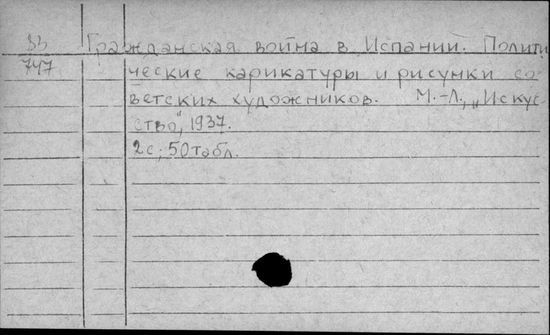 33 Гражданская война в Испании. Полити
747 ческие карикатуры и рисунки со
ветских художников. М.-Л., „Искус
ство", 1937.
2с; 50 табл.